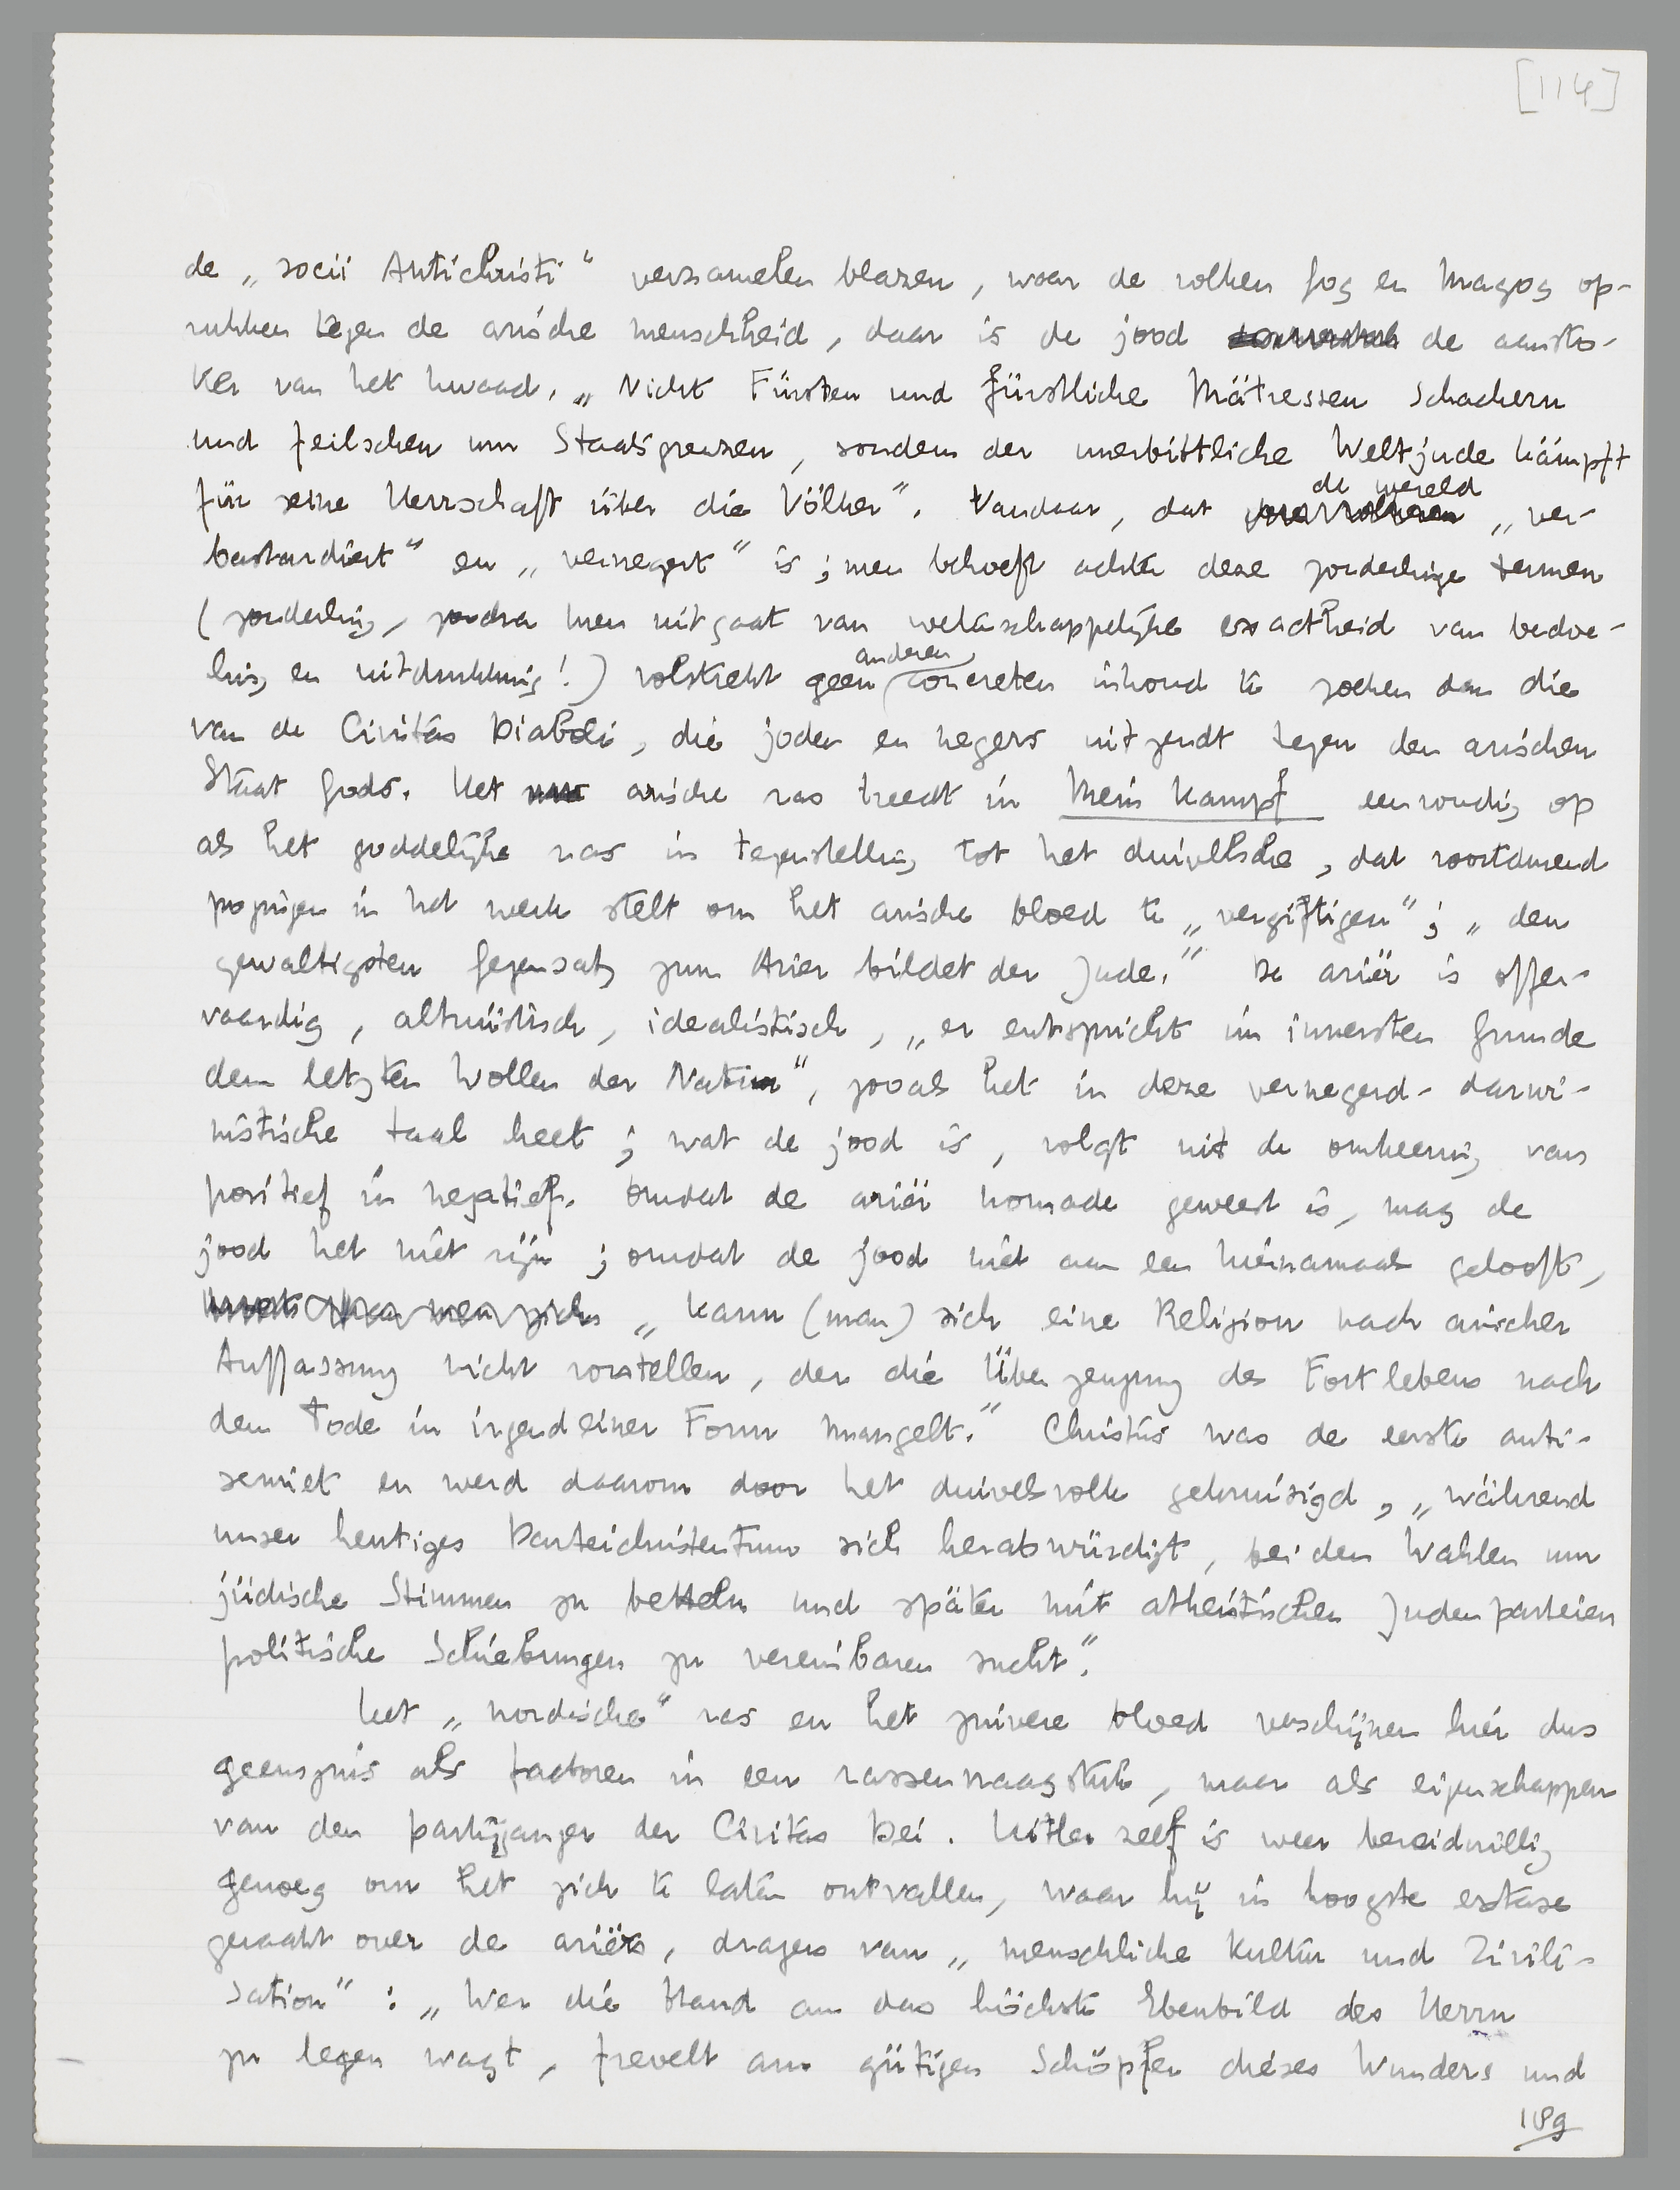 [114]
de „socii Antichristi” verzamelen blazen, waar de volken Gog en Magog op-
rukken tegen de arische menschheid, daar is de jood de aansto-
ker van het kwaad. „Nicht Fürsten und fürstliche Mätressen schachern
und feilschen um Staatsgrenzen, sondern der unerbittliche Weltjude kämpft
für seine Herrschaft über die Völker”. Vandaar, dat de wereld „ver-
bastardiert” en „vernegert” is; men behoeft achter deze zonderlinge termen
(zonderling, zoodra men uitgaat van wetenschappelijke exactheid van bedoe-
ling en uitdrukking!) volstrekt geen anderen concreten inhoud te zoeken dan die
van de Civitas Diaboli, die joden en negers uitzendt tegen den arischen
Staat Gods. Het arische ras treedt in Mein Kampf eenvoudig op
als het goddelijke ras in tegenstelling tot het duivelsche, dat voortdurend
pogingen in het werk stelt om het arische bloed te „vergiftigen”; „den
gewaltigsten Gegensatz zum Arier bildet der Jude.” De ariër is offer-
vaardig, altruïstisch, idealistisch, „er entspricht im innersten Grunde
dem letzten Wollen der Natur”, zooals het in deze vernegerd-darwi-
nistische taal heet; wat de jood is, volgt uit de omkeering van
positief in negatief. Omdat de ariër nomade geweest is, mag de
jood het niet zijn; omdat de jood niet aan een hiernamaals gelooft,
„kann (man) sich eine Religion nach arischer
Auffassung nicht vorstellen, der die Überzeugung des Fortlebens nach
dem Tode in irgendeiner Form mangelt.” Christus was de eerste anti-
semiet en werd daarom door het duivelsvolk gekruisigd, „während
unser heutiges Parteichristentum sich herabwürdigt, bei den Wahlen um
jüdische Stimmen zu betteln und später mit atheistischen Judenparteien
politische Schiebungen zu vereinbaren sucht”.
Het „nordische” ras en het zuivere bloed verschijnen hier dus
geenszins als factoren in een rassenvraagstuk, maar als eigenschappen
van den partijganger der Civitas Dei. Hitler zelf is weer bereidwillig
genoeg om het zich te laten ontvallen, waar hij in hoogste extase
geraakt over de ariërs, dragers van „menschliche Kultur und Zivili-
sation”: „Wer die Hand an das höchste Ebenbild des Herrn
zu legen wagt, frevelt am gütigen Schöpfer dieses Wunders und
189